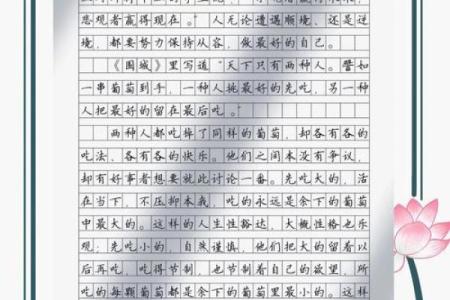 悲观者赢得现在。"人无论遭遇顺境、还是逆
境，都要努力保持从容，做最好的自己。
《围城》里写道"天下只有两种人。譬如
一串葡萄到手，一种人挑最好的先吃，另一种
人把最好的留在最后吃。"
两种人都吃掉了同样的葡萄，却各有各的
吃法、各有各的快乐。他们之间本没有争议，
却有好事者想要就此讨论一番。先吃大的，活
在当下，不压抑本我，吃的永远是余下的葡萄
中最大的。这样的人生性豁达，大概性格也乐
观；先吃小的，自然谨慎，他们把大的留着以
后再吃，吃得节制，也节制着自己的欲望，所
吃的每颗葡萄都是余下的葡萄里最小的。这样